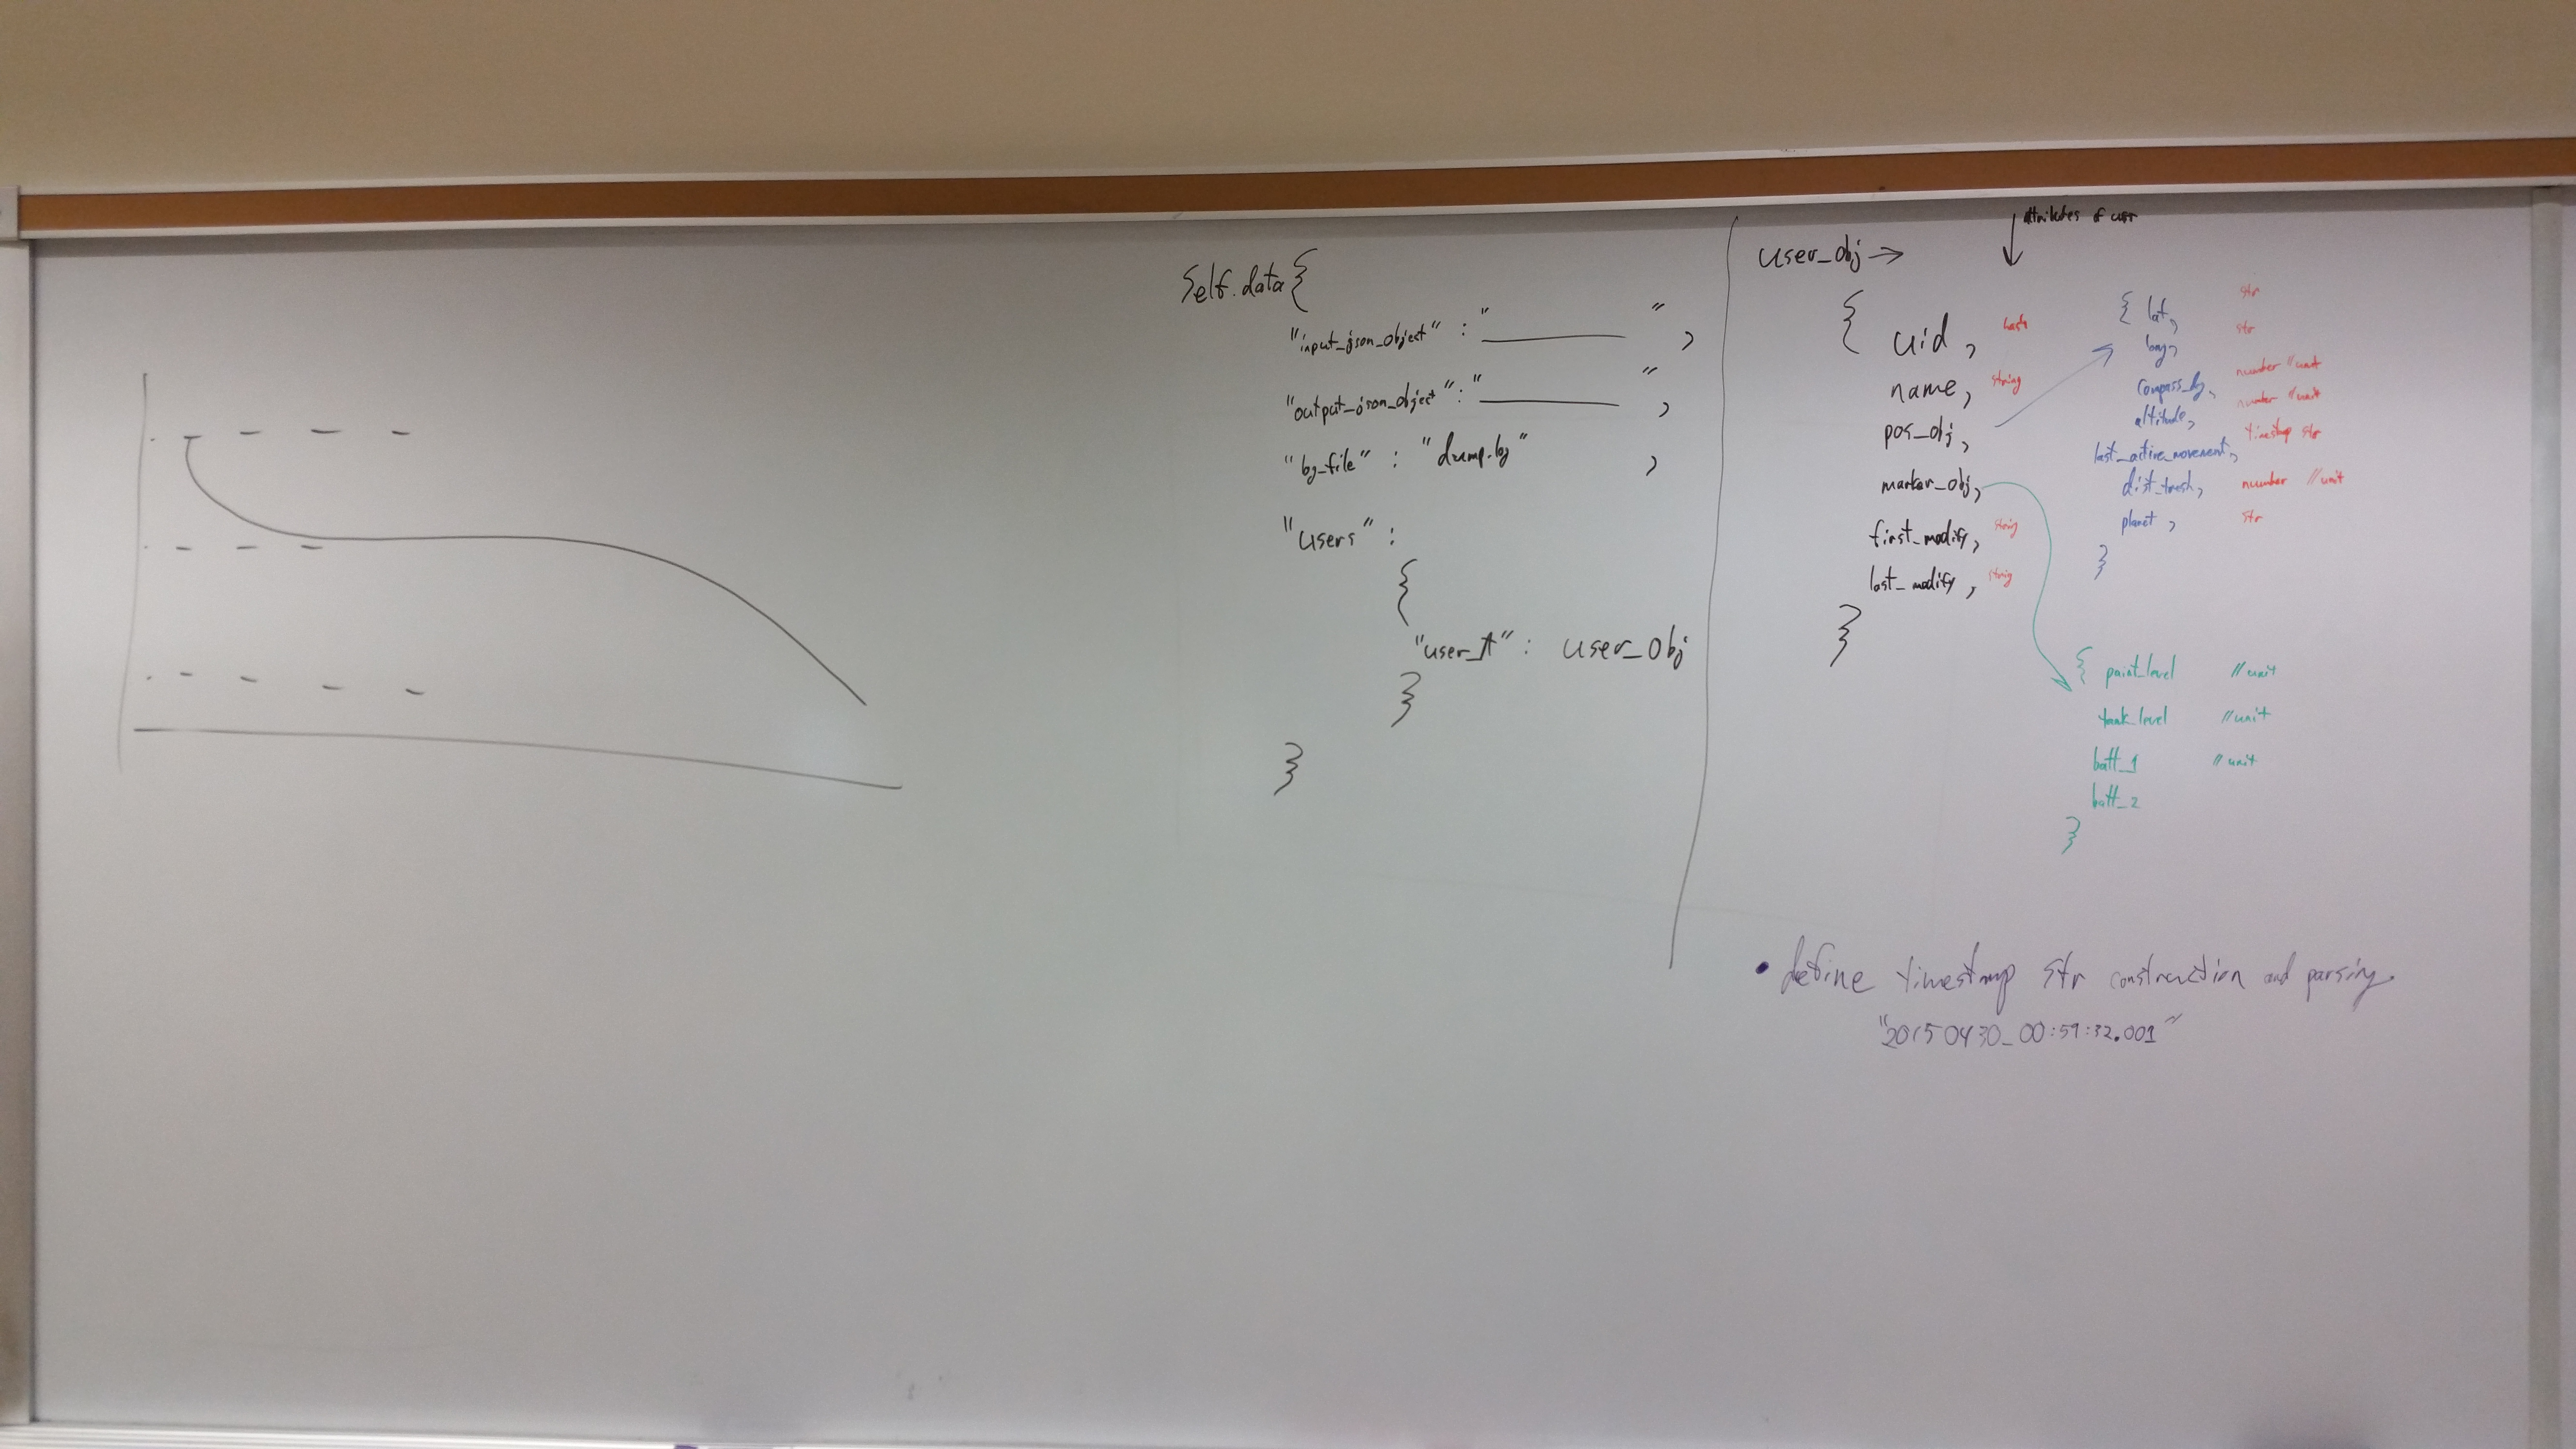 Self.data{
"input_json_object" : "________" ,
"output_json_object" : "________" ,
"log_file" : "dump.log" ,
"users" :
{
: user_obj
}
}
attributes of user
user_obj →
{ uid, hash
name, string
pos_obj,
marker_obj,
first_modify, string
last_modify, string
}
{ lat, str
long, str
compass_deg, number //unit
altitude, number //unit
last_active_movement, timestamp str
dist_tresh, number //unit
planet, str
}
{ paint_level //unit
tank_level //unit
batt_1 //unit
batt_2
}
• define timestamp str construction and parsing
"20150430_00:59:32.001"